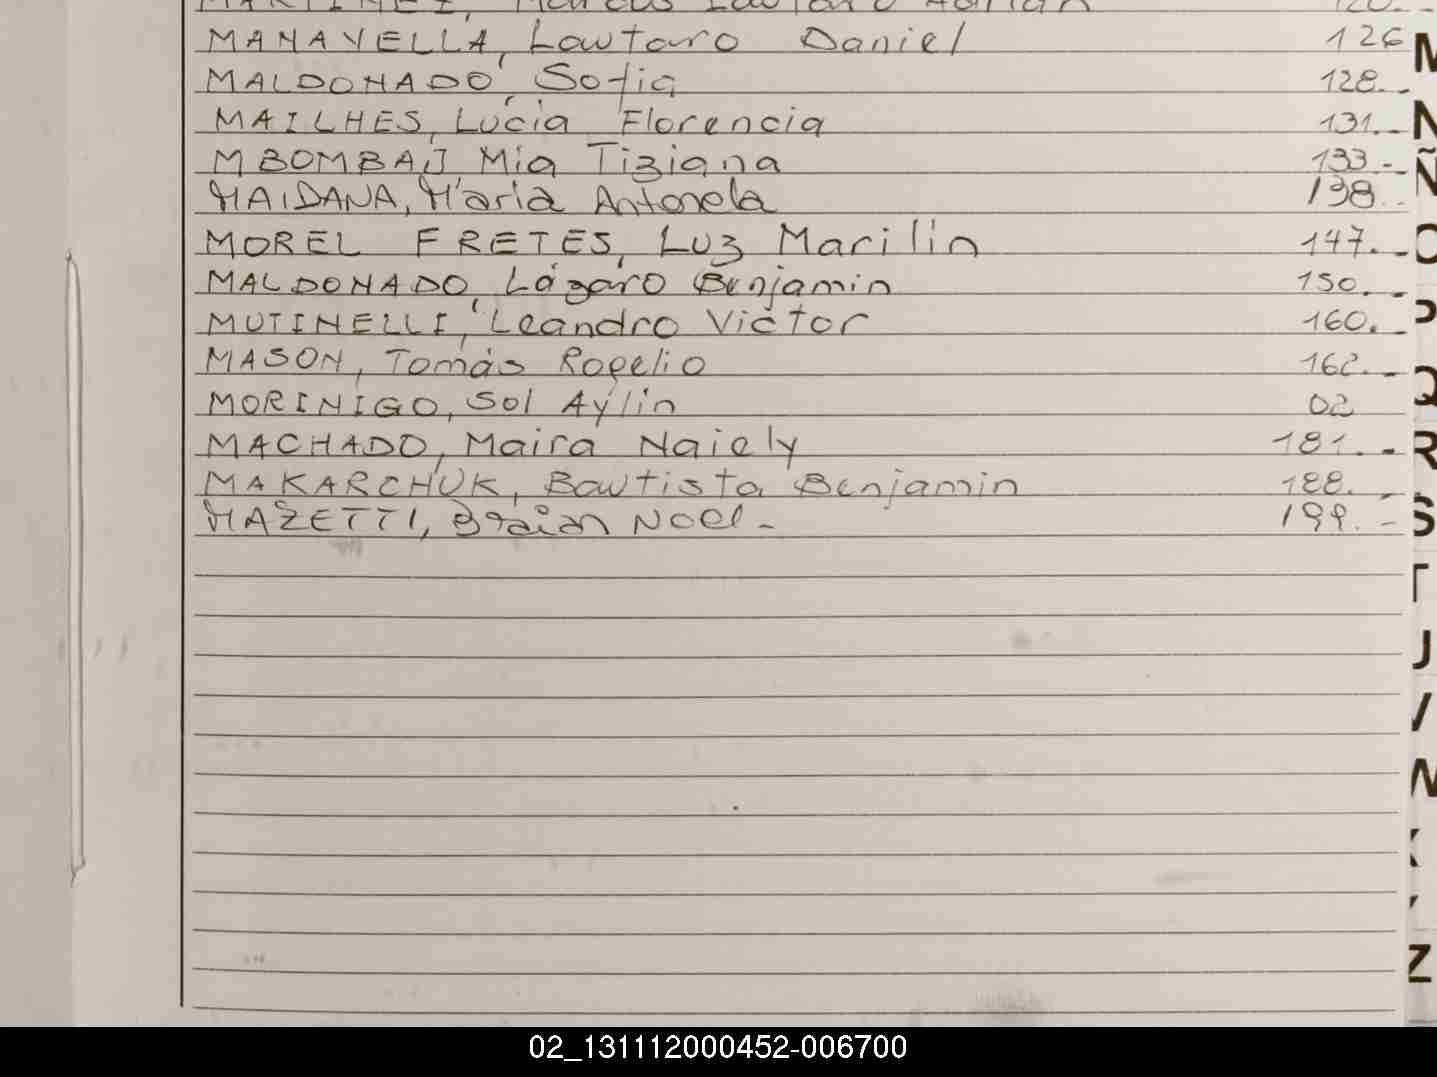 MARTINEZ, Marcos Lautaro Adrián 120.-
MANAVELLA, Lautaro Daniel 126
MALDONADO, Sofia 128.-
MAILHES, Lucía Florencia 131.-
MBOMBAJ Mia Tiziana 133-
MAIDANA, María Antonela 138
MOREL FRETES, Luz Marilin 147.-
MALDONADO, Lázaro Benjamin 150.-
MUTINELLI, Leandro Victor 160.-
MASON, Tomás Rogelio 162.-
MORINIGO, Sol Aylin 02
MACHADO, Maira Naiely 181.-
MAKARCHUK, Bautista Benjamin 188.-
MAZETTI, Braian Noel- 199.-
M
N
Ñ
O
P
Q
R
S
T
U
V
W
X
Y
Z
02_131112000452-006700